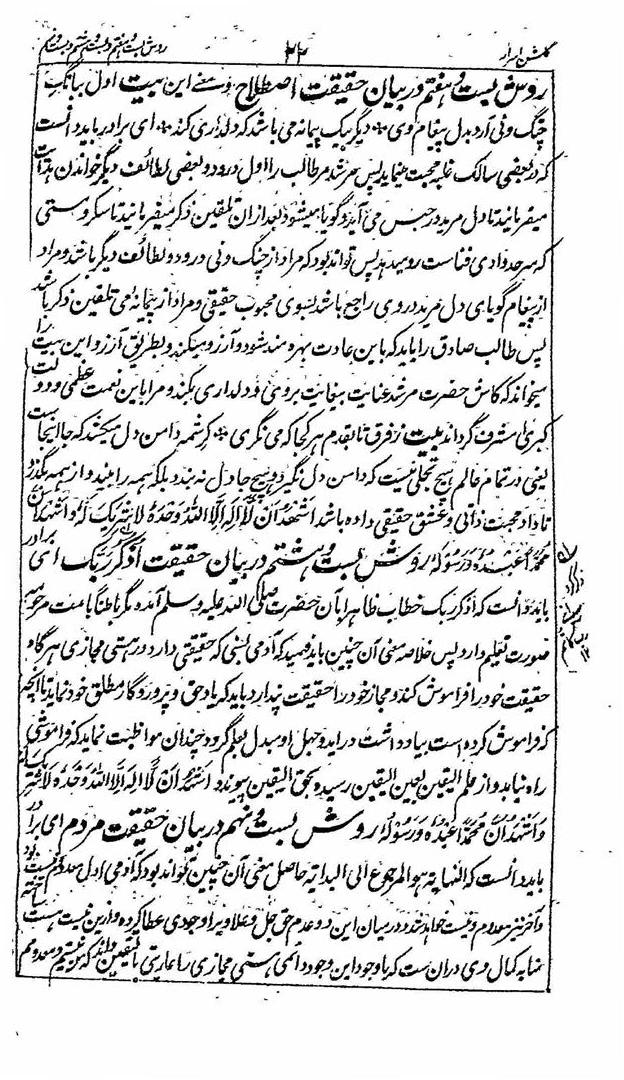 گلشن اسرار ۲۲ روش بست و هفتم و بست و هشتم و بست و نهم
روش بست و هفتم در بیان حقیقت اصطلاح و معنے این بیت اول ببانگ
چنگ و نی آرد بدل پیغام وی دیگر بیک پیمانه می باشد که دلداری کند ای برادر باید دانست
که در بعضی سالک غلبه محبت مینماید پس مرشد مر طالب را اول درود و بعضی لطائف دیگر خواندن هدایت
میفرمایند تا دل مرید در حبس می آید و گویا میشود بعد ازان تلقین ذکر میفرمایند تا سکر و مستی
که سرحد وادی فناست رو میدهد پس تواند بود که مراد از چنگ و نی درود و لطائف دیگر باشد و مراد
از پیغام گویای دل مرید در وی راجع باشد بسوی محبوب حقیقی و مراد از پیمانه می تلقین ذکر باشد
پس طالب صادق را باید که باین عادت بهره مند شود و آرزو میکند و بطریق آرزو این بیت را
میخواند که کاش حضرت مرشد عنایت بیغایت بر وی و دلداری بکند و مرا باین نعمت عظمی و دولت
کبری مشرف گرداند بیت ز فرق تا بقدم هر کجا که می نگری کرشمه دامن دل میکشد که جا اینجاست
یعنی در تمام عالم هیچ تجلی نیست که دامن دل نگیرد و هیچ جا دل نه بندد بلکه همه را بیند و از همه بگذرد
تا داد محبت ذاتی و عشق حقیقی داده باشد اشهد ان لا اله الا الله وحده لا شریک له و اشهد ان
محمدا عبده و رسوله روش بست و هشتم در بیان حقیقت اذکر ربک ای برادر
باید دانست که اذکر ربک خطاب ظاهرا بآن حضرت صلی الله علیه و سلم آمده مگر باطنا بامت مرحومه
صورت تعلیم دارد پس خلاصه معنی آن چنین باید فهمید که آدمی نسبی که حقیقی دارد و هستی مجازی هرگاه
حقیقت خود را فراموش کند و مجاز خود را حقیقت پندارد باید که یاد حق و پروردگار مطلق خود نماید تا آنچه
که فراموش کرده است بیاد داشت در آید و جهل او مبدل بعلم گردد چندان مواظبت نماید که فراموشی
راه نیابد و از علم الیقین بعین الیقین رسیده بحق الیقین پیوندد اشهد ان لا اله الا الله وحده لا شریک له
و اشهد ان محمدا عبده و رسوله روش بست و نهم در بیان حقیقت مردم ای برادر
باید دانست که النهایة هو المرجوع الی البدایة حاصل معنی آن چنین تواند بود که آدمی اول معدوم و نیست بود
و آخر نیز معدوم و نیست خواهد شد و درمیان این دو عدم حق جل و علا ویرا وجودی عطا کرده و ازین نیست هست
نهایه کمال وی دران ست که باوجود این وجود دائمی هستی مجازی را عاریتی بالیقین داند که من نیستم و معدومم